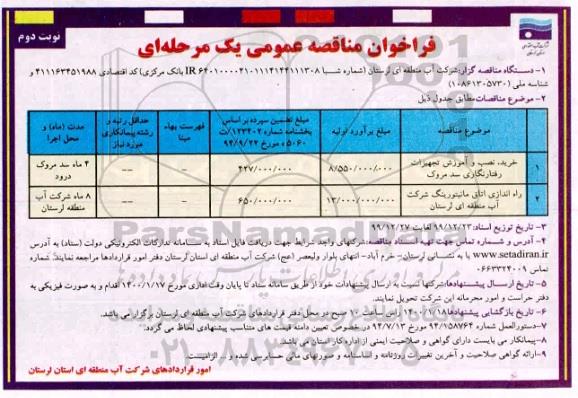 نوبت دوم
فراخوان مناقصه عمومی یک مرحله‌ای
۱- دستگاه مناقصه گزار: شرکت آب منطقه ای لرستان (شماره شبا IR ۶۴۰۱۰۰۰۰۴۱۰۱۱۱۴۱۴۴۱۱۱۳۰۸ بانک مرکزی) کد اقتصادی ۴۱۱۱۶۳۴۵۱۹۸۸ و
شناسه ملی (۱۰۸۶۱۳۰۵۷۳۰)
۲- موضوع مناقصات: مطابق جدول ذیل
موضوع مناقصه | مبلغ برآورد اولیه | مبلغ تضمین سپرده بر اساس بخشنامه شماره ۱۲۳۴۰۲/ت ۵۰۶۰ ه مورخ ۹۴/۹/۲۲ | فهرست بهاء مبنا | حداقل رتبه و رشته پیمانکاری مورد نیاز | مدت (ماه) و محل اجرا
۱ | خرید، نصب و آموزش تجهیزات رفتارنگاری سد مروک | ۸/۵۵۰/۰۰۰/۰۰۰ | ۴۲۷/۰۰۰/۰۰۰ | -- | -- | ۴ ماه سد مروک درود
۲ | راه اندازی اتاق مانیتورینگ شرکت آب منطقه ای لرستان | ۱۳/۰۰۰/۰۰۰/۰۰۰ | ۶۵۰/۰۰۰/۰۰۰ | -- | -- | ۸ ماه شرکت آب منطقه لرستان
۳- تاریخ توزیع اسناد: ۹۹/۱۲/۲۳ لغایت ۹۹/۱۲/۲۷
۴- آدرس و شماره تماس جهت تهیه اسناد مناقصه: شرکتهای واجد شرایط جهت دریافت فایل اسناد به سامانه تدارکات الکترونیکی دولت (ستاد) به آدرس
www.setadiran.ir یا به نشانی لرستان- خرم آباد- انتهای بلوار ولیعصر (عج) شرکت آب منطقه ای استان لرستان دفتر امور قراردادها مراجعه نمایند. شماره
تماس ۰۶۶۳۳۲۴۰۰۹
۵- تاریخ ارسال پیشنهادها: شرکتها نسبت به ارسال پیشنهادات خود از طریق سامانه ستاد تا پایان وقت اداری مورخ ۱۴۰۰/۱/۱۷ اقدام و به صورت فیزیکی به
دفتر حراست و امور محرمانه این شرکت تحویل نمایند.
۶- تاریخ بازگشایی پیشنهادها: ۱۴۰۰/۱/۱۸ راس ساعت ۱۰ صبح در محل دفتر قراردادهای شرکت آب منطقه ای لرستان برگزار می باشد.
۷- دستورالعمل شماره ۹۴/۱۵۸۷۶۴ مورخ ۹۴/۷/۱۳ در خصوص تعیین دامنه قیمت های متناسب پیشنهادی لحاظ می گردد.
۸- پیمانکار می بایست دارای گواهی و صلاحیت ایمنی از اداره کار استان می باشد.
۹- ارائه گواهی صلاحیت و آخرین تغییرات روزنامه و اساسنامه و صورتهای مالی حسابرسی شده و ... الزامیست.
امور قراردادهای شرکت آب منطقه ای استان لرستان
ParsNamadData